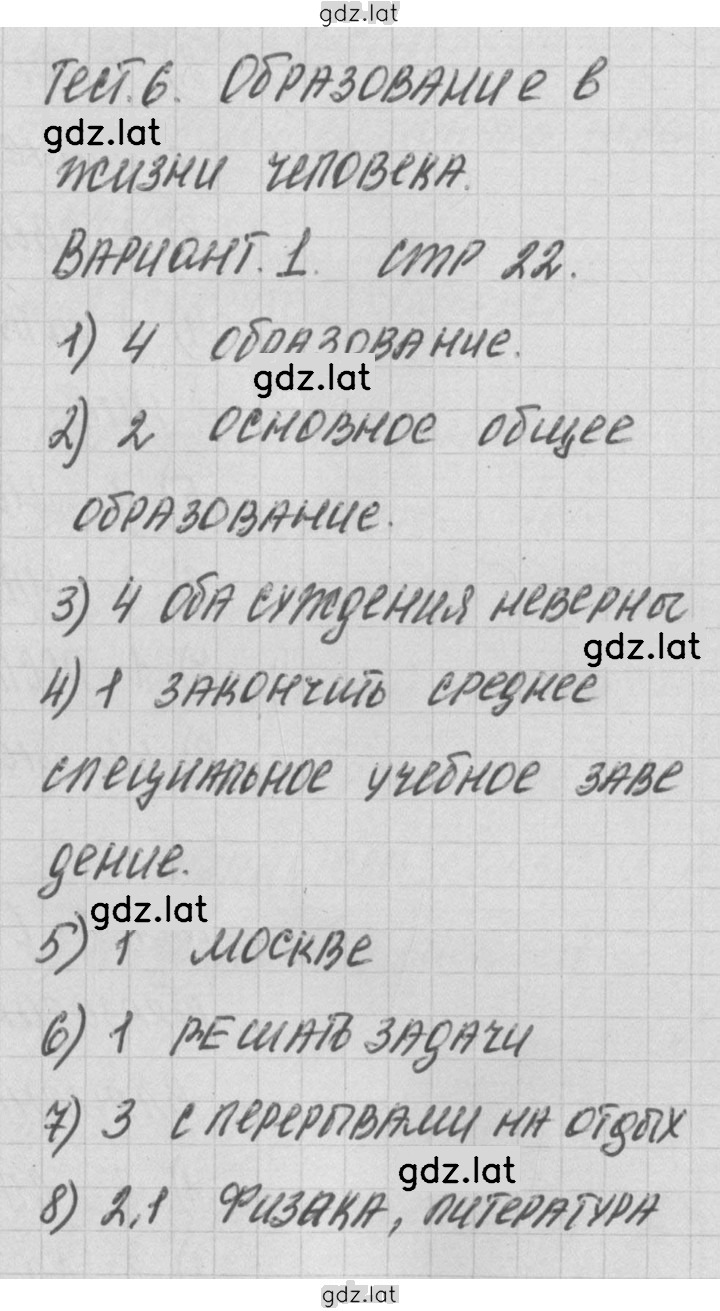 gdz.lat
Тест.6. Образование в
gdz.lat
жизни человека.
Вариант.1. стр 22.
1) 4 образование.
gdz.lat
2) 2 основное общее
образование.
3) 4 оба суждения неверны
gdz.lat
4) 1 закончить среднее
специальное учебное заве
дение.
gdz.lat
5) 1 Москве
6) 1 решать задачи
7) 3 с перерывами на отдых
gdz.lat
8) 2,1 Физака, литература
gdz.lat